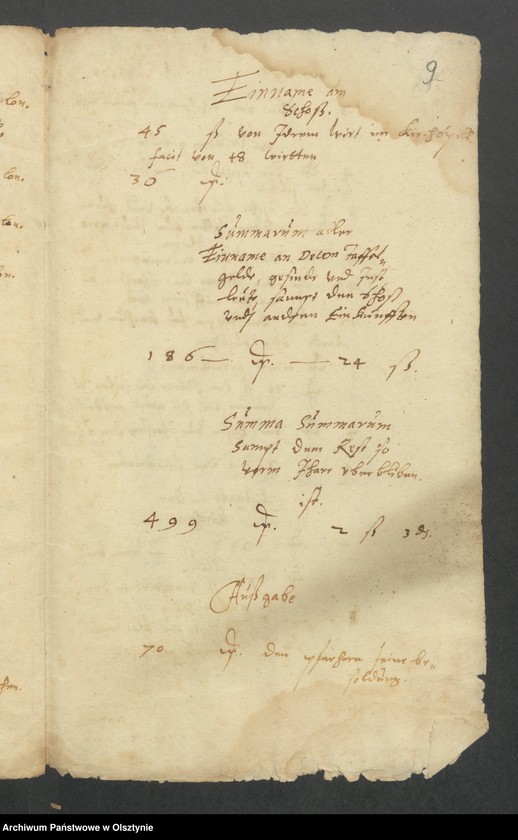 9.
Einname am
Schoß.
45 ß von Iderem Wirt im Kirchspill
facit von 48 wirtten
36 ℳ.
Summarum aller
Einname an Decem
gelde, gesinde vnd Inst
leute, sampt den schoß
vnd andern Einkunfften
186 — ℳ. — 24 ß.
Summa Summarum
sampt dem Rest so
vorm Jhare vberbliben
ist.
499 ℳ. 2 ß 3 d.
Außgabe
70 ℳ. dem pfarhern seine be=
soldung.
Archiwum Państwowe w Olsztynie